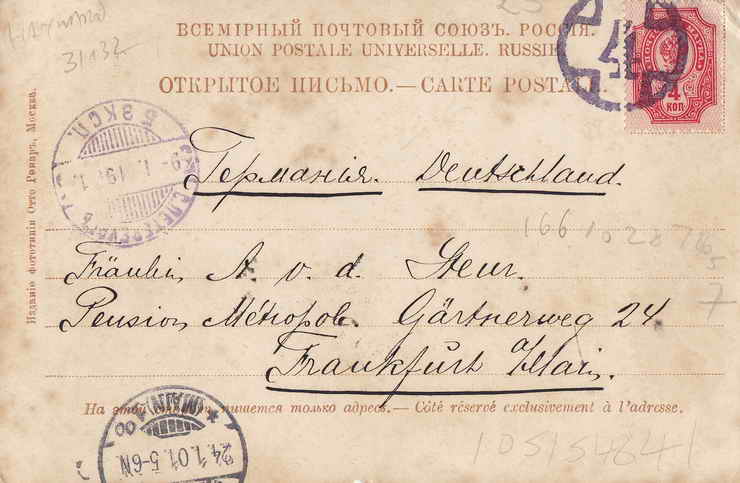 ВСЕМІРНЫЙ ПОЧТОВЫЙ СОЮЗЪ. РОССІЯ.
UNION POSTALE UNIVERSELLE. RUSSIE.
ОТКРЫТОЕ ПИСЬМО.— CARTE POSTALE.
31132
17
4
КОП
5 ЭКСП.
С.ПЕТЕРБУРГЪ
Германія. Deutschland.
166 10 28
7
Fräulein A. v. d. Steur.
Pension Métropol. Gärtnerweg 24
Frankfurt Main.
На этой сторонѣ пишется только адресъ.— Côté réservé exclusivement à l'adresse.
(MAIN)
24.1.01.5-6N.
105154841
Изданіе фототипіи Отто Ренаръ, Москва.